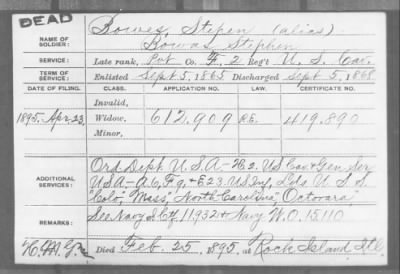 DEAD
NAME OF SOLDIER: Bowes, Stephen (alias)
Bowas Stephen
SERVICE: Late rank, Pvt Co. F, 2 Reg't U. S. Cav.
TERM OF SERVICE: Enlisted Sept 5, 1865 Discharged Sept 5, 1868
DATE OF FILING. CLASS. APPLICATION NO. LAW. CERTIFICATE NO.
Invalid,
1895, Apr. 23 Widow, 612,909 419,890
Minor,
ADDITIONAL SERVICES: Ord Dept U.S.A - 2 US Cav & Gen Ser
USA - A, C, F, & E 23 US Inf, U. S. S.
"Colo", "Mass", "North Carolina", "Octorara"
REMARKS: See Navy S. Ctf 11932 & Navy W.O. 15110
Died Feb. 25, 1895, at Rock Island Ill.